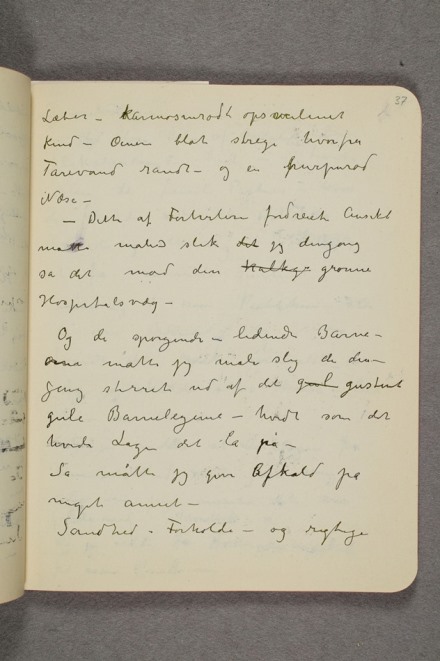 37
Læber – Karmosinrødt opsvulmet
Kind – Øinene blot strege hvorfra
Tårevand randt – og en purpurød
Næse –
– Dette af Fortvivlelsen fordreiet Ansikt
måtte males slik det jeg dengang
så det mod den kalkge grønne
Hospitalsvæg –
Og de spørgende – lidende Barne-
øine måtte jeg male slig de den-
gang stirret ud af det gul gustent
gule Barnelegeme – hvidt som det
hvide Lagen det lå på –
Så måtte jeg give Afkald på
meget annet –
Sandhed – Forholde – og rigtige